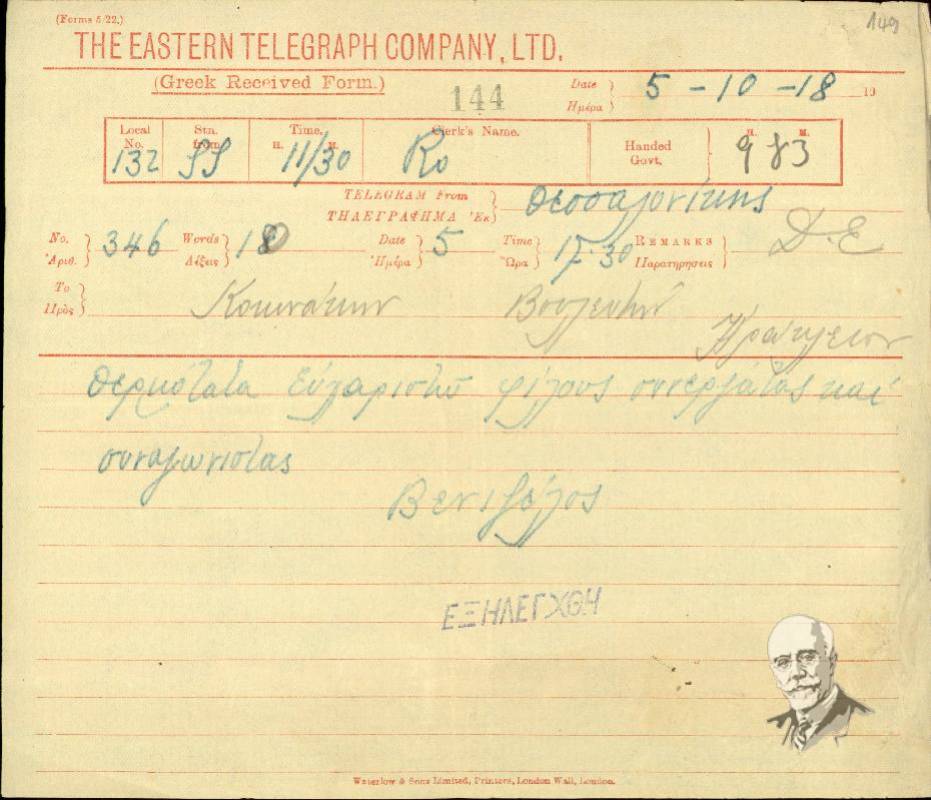 (Forms 5/22.)
149
THE EASTERN TELEGRAPH COMPANY, LTD.
(Greek Received Form.)
144
Date
Ημέρα
5 - 10 - 18
19
Local No. Stn. from Time. Clerk's Name. Handed Govt. H. M.
H. M.
132 SS 11/30 Ro 9 53
TELEGRAM From
ΤΗΛΕΓΡΑΦΗΜΑ Ἐκ
Θεσσαλονίκης
No. 346 Words 18 Date 5 Time 17.30 REMARKS D.E
Ἀριθ. Λέξεις Ἡμέρα Ὥρα Παρατηρήσεις
To
Πρὸς
Βουλευτήν
Ηράκλειον
Θερμότατα εὐχαριστῶ φίλους συνεργάτας καί
συναγωνιστάς
Βενιζέλος
ΕΞΗΛΕΓΧΘΗ
Waterlow & Sons Limited, Printers, London Wall, London.